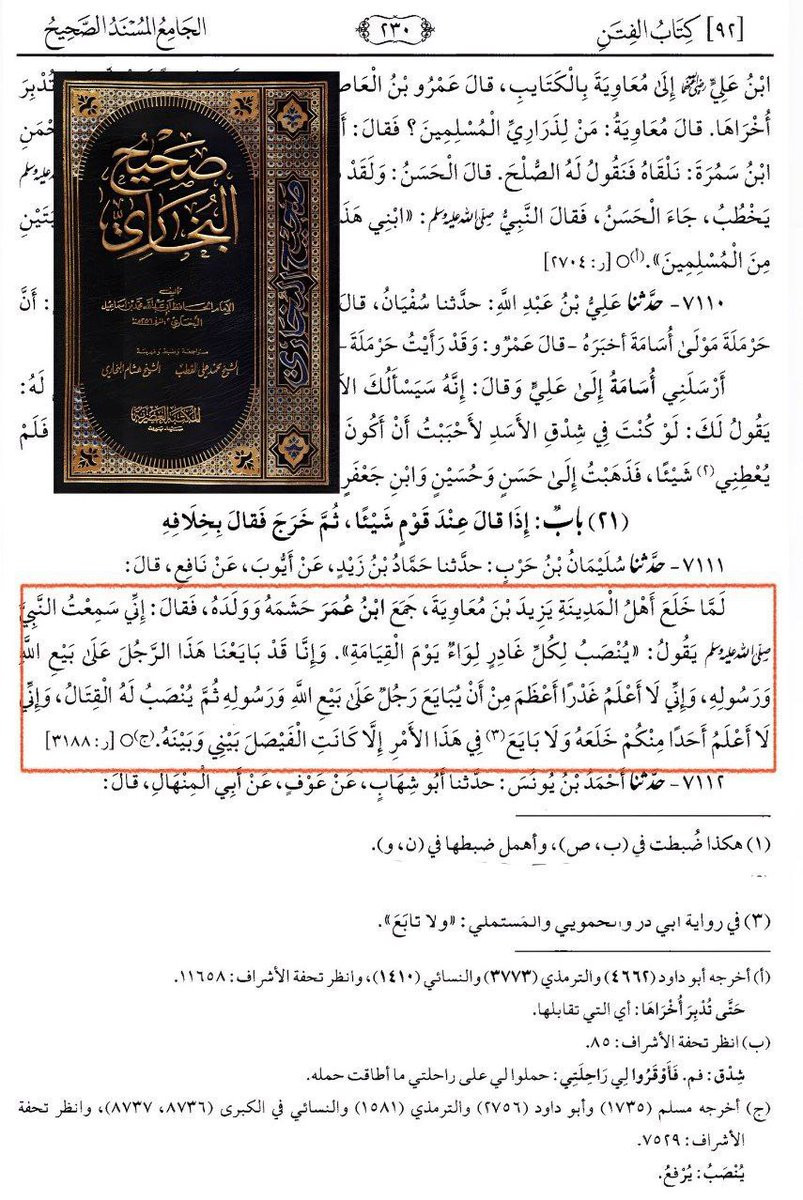 [٩٢] كِتَابُ الفِتَنِ
٢٣٠
الجَامِعُ المُسْنَدُ الصَّحِيحُ
ابْنُ عَلِيٍّ رضي الله عنهما إِلَىٰ مُعَاوِيَةَ بِالْكَتَايِبِ، قالَ عَمْرُو بْنُ العَاصِ
تُدْبِرَ
أُخْرَاهَا. قالَ مُعَاوِيَةُ: مَنْ لِذَرَارِيِّ الْمُسْلِمِينَ؟ فَقالَ:
ابْنُ سَمُرَةَ: نَلْقَاهُ فَنَقُولُ لَهُ الصُّلْحَ. قالَ الْحَسَنُ: وَلَقَدْ
صلى الله عليه وسلم
يَخْطُبُ، جَاءَ الْحَسَنُ، فَقالَ النَّبِيُّ صلى الله عليه وسلم: «ابْنِي
مِنَ الْمُسْلِمِينَ».(أ)○ [ر: ٢٧٠٤]
٧١١٠- حَدَّثنا عَلِيُّ بْنُ عَبْدِ اللَّهِ: حدَّثنا سُفْيَانُ، قالَ
: أَنَّ
حَرْمَلَةَ مَوْلَىٰ أُسَامَةَ أخبَرَهُ -قالَ عَمْرٌو: وَقَدْ رَأَيْتُ حَرْمَلَةَ-
أَرْسَلَنِي أُسَامَةُ إِلَىٰ عَلِيٍّ وَقالَ: إِنَّهُ سَيَسْأَلُكَ
لَهُ:
يَقُولُ لَكَ: لَوْ كُنْتَ فِي شِدْقِ الأَسَدِ لأَحْبَبْتُ أَنْ أَكُونَ
فَلَمْ
يُعْطِنِي(٢) شَيْئًا، فَذَهَبْتُ إِلَىٰ حَسَنٍ وَحُسَيْنٍ وَابْنِ جَعْفَرٍ
صَحِيحُ
البُخَارِيِّ
صحيح البخاري
تأليف
الإمام الحافظ أبي عبد الله محمد بن إسماعيل
البخاري
مراجعة وضبط وفهرسة
الشيخ محمد علي القطب
الشيخ هشام البخاري
المكتبة العصرية
(٢١) بابٌ: إِذَا قالَ عِنْدَ قَوْمٍ شَيْئًا، ثُمَّ خَرَجَ فَقالَ بِخِلَافِهِ
٧١١١- حَدَّثنا سُلَيْمَانُ بْنُ حَرْبٍ: حدَّثنا حَمَّادُ بْنُ زَيْدٍ، عَنْ أَيُّوبَ، عَنْ نَافِعٍ، قالَ:
لَمَّا خَلَعَ أَهْلُ الْمَدِينَةِ يَزِيدَ بْنَ مُعَاوِيَةَ، جَمَعَ ابْنُ عُمَرَ حَشَمَهُ وَوَلَدَهُ، فَقالَ: إِنِّي سَمِعْتُ النَّبِيَّ
صلى الله عليه وسلم يَقُولُ: «يُنْصَبُ لِكُلِّ غَادِرٍ لِوَاءٌ يَوْمَ الْقِيَامَةِ». وَإِنَّا قَدْ بَايَعْنَا هَذَا الرَّجُلَ عَلَىٰ بَيْعِ اللَّهِ
وَرَسُولِهِ، وَإِنِّي لَا أَعْلَمُ غَدْرًا أَعْظَمَ مِنْ أَنْ يُبَايَعَ رَجُلٌ عَلَىٰ بَيْعِ اللَّهِ وَرَسُولِهِ ثُمَّ يُنْصَبُ لَهُ الْقِتَالُ، وَإِنِّي
لَا أَعْلَمُ أَحَدًا مِنْكُمْ خَلَعَهُ وَلَا بَايَعَ(٣) فِي هَذَا الأَمْرِ إِلَّا كَانَتِ الْفَيْصَلَ بَيْنِي وَبَيْنَهُ.(ج)○ [ر: ٣١٨٨]
٧١١٢- حَدَّثنا أَحْمَدُ بْنُ يُونُسَ: حدَّثنا أَبُو شِهَابٍ، عَنْ عَوْفٍ، عَنْ أَبِي الْمِنْهَالِ، قالَ:
(١) هكذا ضُبطت في (ب، ص)، وأهمل ضبطها في (ن، و).
(٣) في رواية أبي ذر والحمويي والمستملي: «ولا تابَعَ».
(أ) أخرجه أبو داود (٤٦٦٢) والترمذي (٣٧٧٣) والنسائي (١٤١٠)، وانظر تحفة الأشراف: ١١٦٥٨.
حَتَّى تُدْبِرَ أُخْرَاهَا: أي التي تقابلها.
(ب) انظر تحفة الأشراف: ٨٥.
شِدْق: فم. فَأَوْقَرُوا لِي رَاحِلَتِي: حملوا لي على راحلتي ما أطاقت حمله.
(ج) أخرجه مسلم (١٧٣٥) وأبو داود (٢٧٥٦) والترمذي (١٥٨١) والنسائي في الكبرى (٨٧٣٦، ٨٧٣٧)، وانظر تحفة
الأشراف: ٧٥٢٩.
يُنْصَبُ: يُرْفعُ.